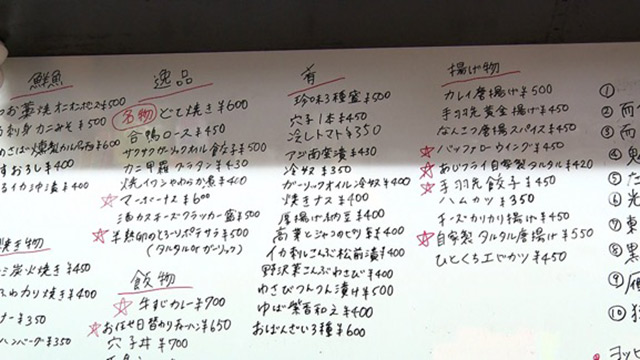 鮮魚
お藁焼オニオンポン酢¥500
刺身カニみそ¥500
めさば燻製カルパ西¥600
すおろし¥400
るイカ沖漬¥400
焼き物
ミ炭火焼き¥450
ふわカリ焼き¥400
ナー¥350
ハンバーグ¥350
逸品
名物 どて焼き¥600
合鴨ロース¥450
サクサクガーリックオイル餃子¥500
カニ甲羅グラタン¥430
焼イワシやわらか煮¥400
☆マーボーナス¥600
三色カスチーズクラッカー蜜¥500
☆半熟卵のとろ〜りポテサラ¥500
(タルタルorガーリック)
飯物
☆牛すじカレー¥700
☆お任せ日替わりチャーハン¥650
穴子丼¥700
肴
珍味3種盛¥500
穴キュー1本¥450
冷しトマト¥350
アジ南蛮漬¥430
冷奴¥350
ガーリックオイル冷奴¥400
焼きナス¥400
厚揚げ納豆¥400
高菜とジャコのピリ辛¥400
イカ刺しこんぶ松前漬¥400
野沢菜こんぶわさび¥400
わさびつんつん漬け¥500
ゆば紫香和え¥400
おばんざい3種¥600
揚げ物
カレイ唐揚げ¥500
手羽先黄金揚げ¥450
なんこつ唐揚スパイス¥450
☆バッファローウイング¥450
☆あじフライ自家製タルタル¥420
☆手羽先餃子¥450
ハムカツ¥350
チーズカリカリ揚げ¥450
☆自家製タルタル唐揚げ¥550
ひとくち工ビカツ¥450
①
②而
③而
④鬼
⑤た
⑥光
⑦東
⑧黒
⑨雁
⑩独